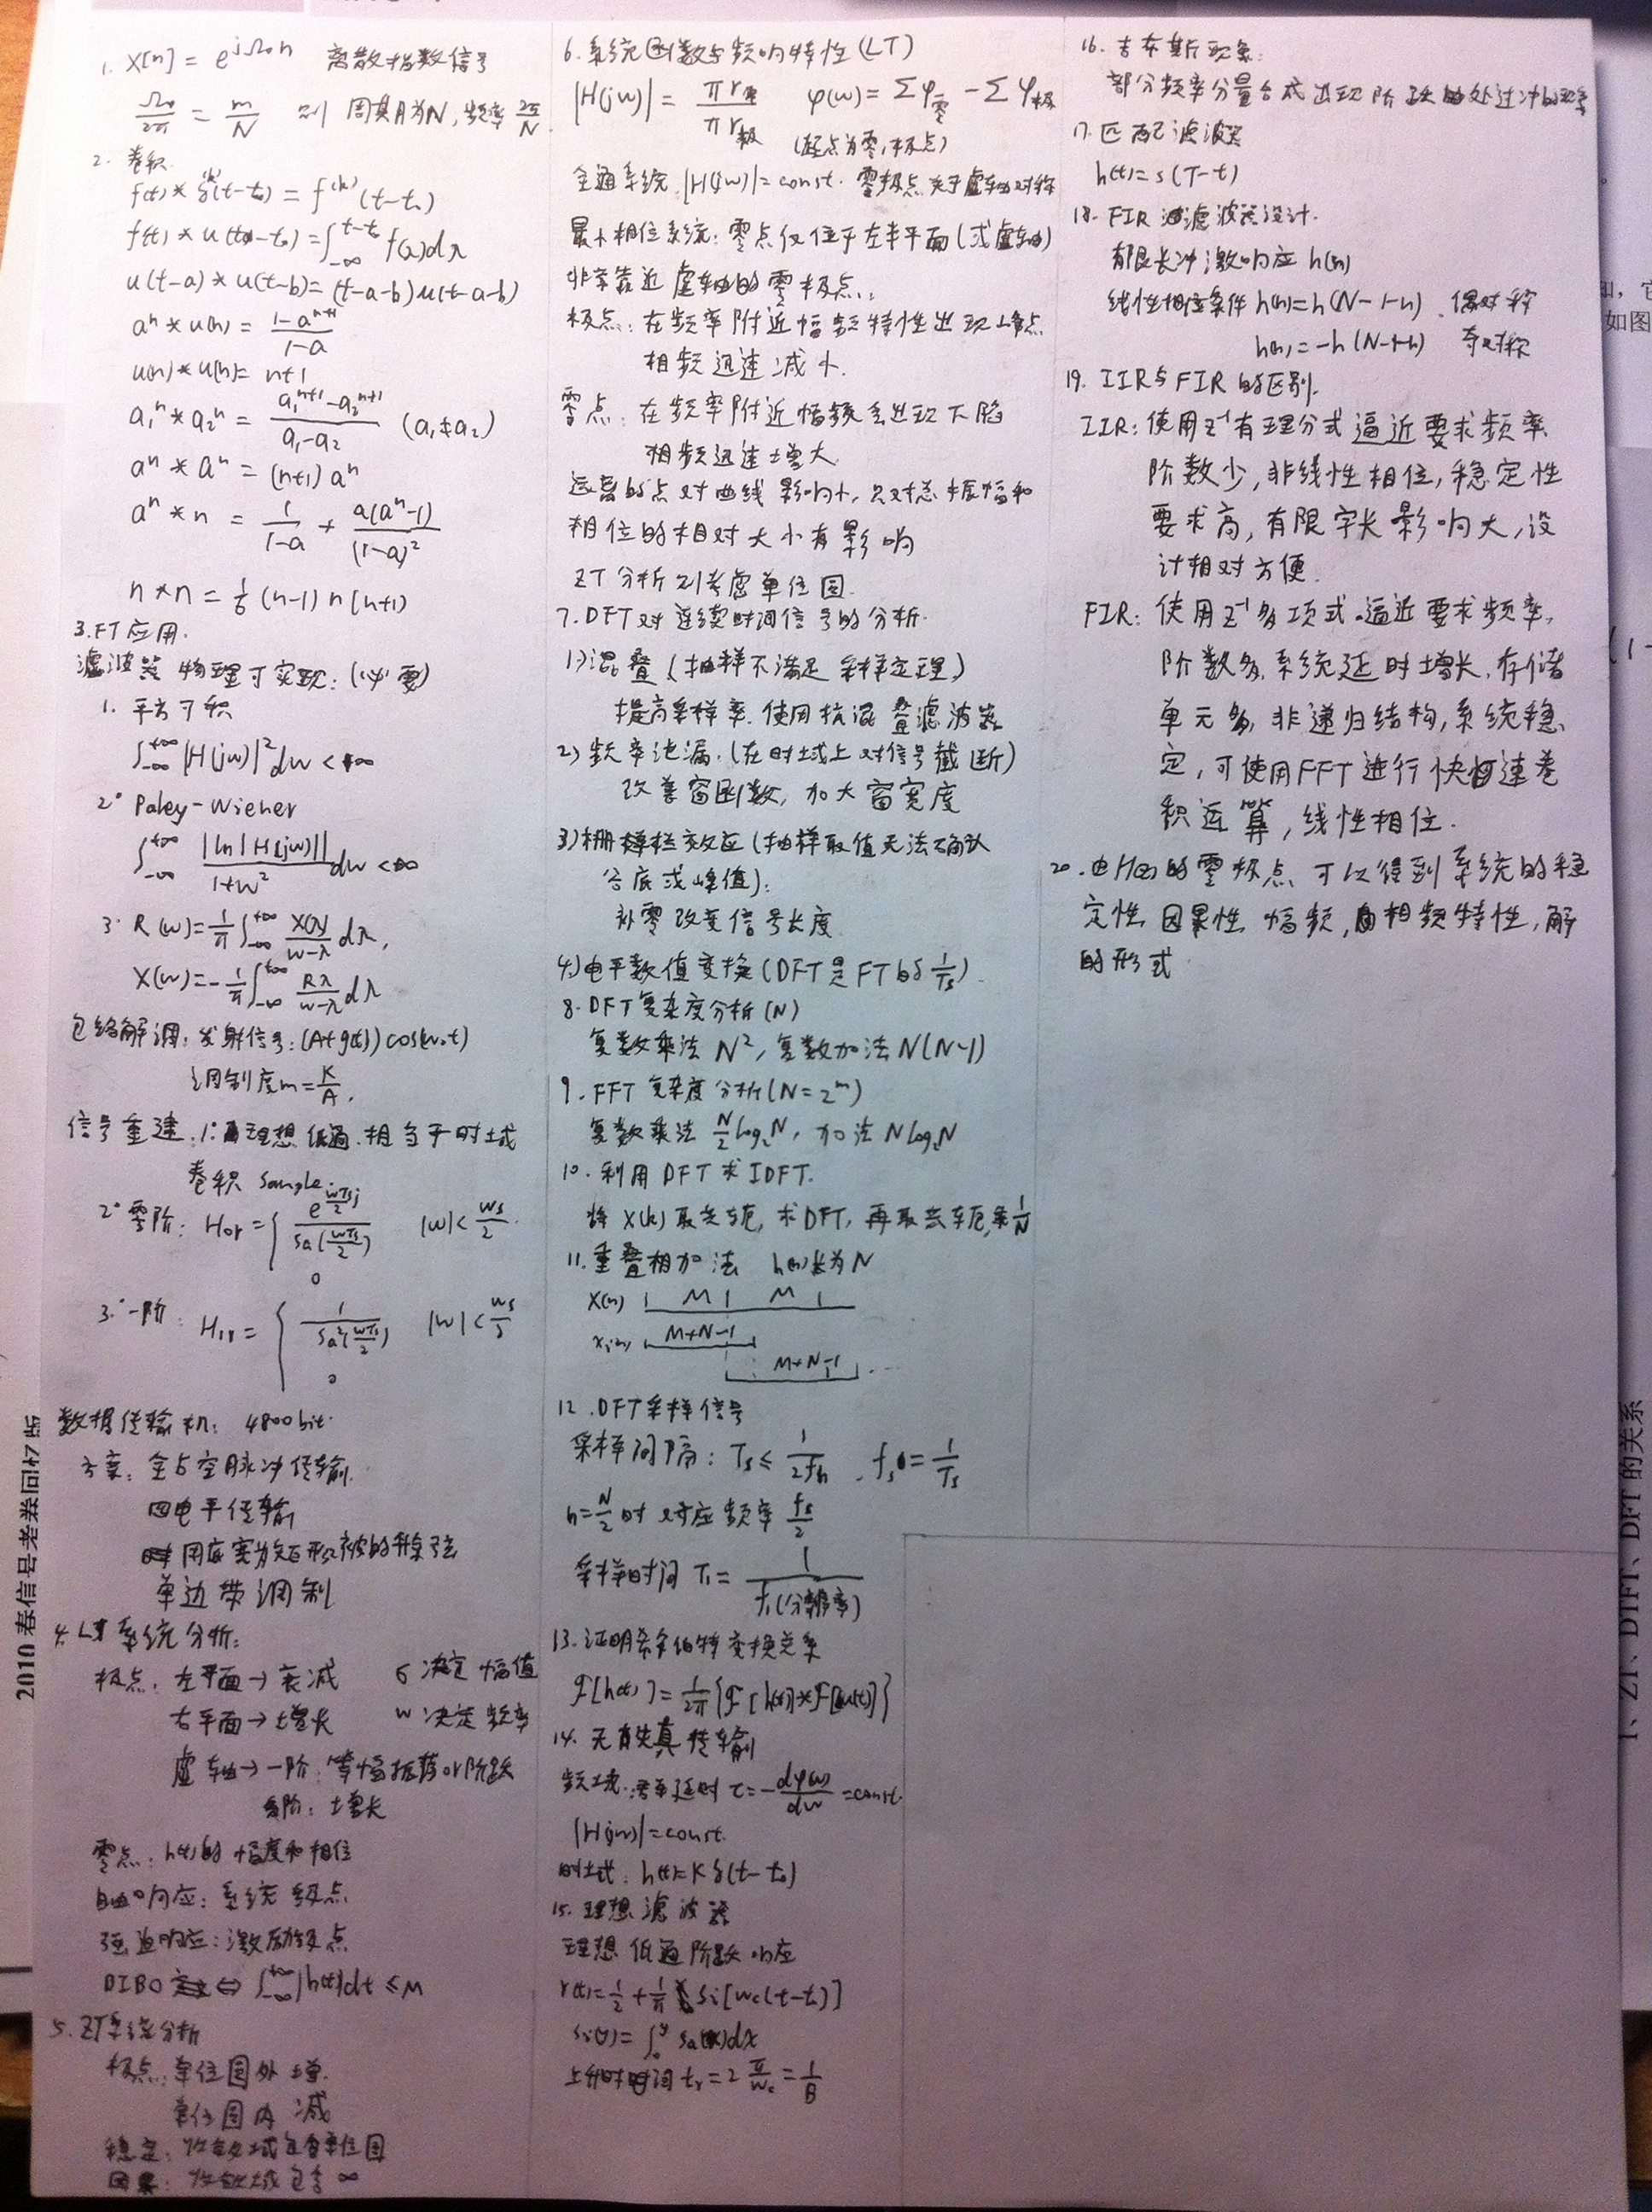 1. X[n] = e^{jΩ₀n} 离散指数信号
Ω₀/2π = m/N 则 周期为N, 频率 2π/N
2. 卷积
f(t) * δ^{(k)}(t-t₀) = f^{(k)}(t-t₀)
f(t) * u(t-t₀) = ∫_{-∞}^{t-t₀} f(λ)dλ
u(t-a) * u(t-b) = (t-a-b)u(t-a-b)
aⁿ * u(n) = (1-a^{n+1})/(1-a)
u(n) * u(n) = n+1
a₁ⁿ * a₂ⁿ = (a₁^{n+1}-a₂^{n+1})/(a₁-a₂) (a₁≠a₂)
aⁿ * aⁿ = (n+1)aⁿ
aⁿ * n = 1/(1-a) + a(aⁿ-1)/(1-a)²
n * n = 1/6 (n-1) n (n+1)
3. FT应用.
滤波器 物理可实现: (必要)
1. 平方可积
∫_{-∞}^{+∞} |H(jw)|² dw < +∞
2° Paley-Wiener
∫_{-∞}^{+∞} |ln|H(jw)||/(1+w²) dw < ∞
3° R(w) = 1/π ∫_{-∞}^{+∞} X(λ)/(w-λ) dλ,
X(w) = -1/π ∫_{-∞}^{+∞} Rλ/(w-λ) dλ
包络解调: 发射信号: (A+g(t)) cos(w₀t)
调制度 m = K/A.
信号重建: 1° 理想低通. 相当于时域
卷积 Sample
2° 零阶: H₀r = { e^{wTsj/2}/Sa(wTs/2) |w| < ws/2
0
3° 一阶: H₁r = { 1/Sa²(wTs/2) |w| < ws/2
0
数据传输机: 4800bit.
方案: 全占空脉冲传输.
四电平传输
用底宽为矩形波的升余弦
单边带调制
4. LT 系统分析:
极点: 左平面→衰减 σ 决定幅值
右平面→增长 w 决定频率
虚轴→一阶: 等幅振荡or阶跃
多阶: 增长
零点: h(t)的幅度和相位
自由响应: 系统极点
强迫响应: 激励极点
BIBO ⇔ ∫_{-∞}^{+∞} |h(t)|dt ≤ M
5. ZT系统分析
极点: 单位圆外 增.
单位圆内 减
稳定: 收敛域包含单位圆
因果: 收敛域包含 ∞
6. 系统函数与频响特性 (LT)
|H(jw)| = πr零/πr极 φ(w) = Σφ零 - Σφ极
(起点为零,极点)
全通系统 |H(jw)| = const. 零极点关于虚轴对称
最小相位系统: 零点仅位于左半平面(或虚轴)
非常靠近虚轴的零极点:
极点: 在频率附近幅频特性出现峰点
相频迅速减小.
零点: 在频率附近幅频会出现下陷
相频迅速增大.
远离的点对曲线影响小, 只对总振幅和
相位的相对大小有影响
ZT分析则考虑单位圆.
7. DFT对连续时间信号的分析.
1) 混叠 (抽样不满足采样定理)
提高采样率. 使用抗混叠滤波器
2) 频率泄漏. (在时域上对信号截断)
改善窗函数, 加大窗宽度
3) 栅栏效应 (抽样取值无法确认
谷底或峰值):
补零改变信号长度
4) 电平数值变换 (DFT是FT的 1/Ts).
8. DFT复杂度分析 (N)
复数乘法 N², 复数加法 N(N-1)
9. FFT 复杂度分析 (N=2^m)
复数乘法 N/2 log₂N, 加法 Nlog₂N
10. 利用DFT求IDFT.
将X(k)取共轭, 求DFT, 再取共轭, 乘 1/N
11. 重叠相加法 h(n)长为N
x(n) M M
xᵢ(n) M+N-1
M+N-1 ...
12. DFT采样信号
采样间隔: Ts ≤ 1/2fh . fs = 1/Ts
n = N/2 时 对应频率 fs/2
采样时间 T₁ = 1/f₁(分辨率)
13. 证明希尔伯特变换关系
F[h(t)] = 1/2π {F[h(t)] * F[u(t)]}
14. 无失真传输
频域: 群延时 τ = -dφ(w)/dw = const.
|H(jw)| = const.
时域: h(t) = Kδ(t-t₀)
15. 理想滤波器
理想低通阶跃响应
r(t) = 1/2 + 1/π Si[wc(t-t₀)]
Si(y) = ∫₀^y Sa(x)dx
上升时间 tr = 2 π/wc = 1/B
16. 吉布斯现象:
部分频率分量合成出现阶跃处过冲的现象
17. 匹配滤波器
h(t) = s(T-t)
18. FIR 滤波器设计.
有限长冲激响应 h(n)
线性相位条件 h(n) = h(N-1-n) 偶对称
h(n) = -h(N-1-n) 奇对称
19. IIR与FIR的区别.
IIR: 使用z⁻¹有理分式逼近要求频率
阶数少, 非线性相位, 稳定性
要求高, 有限字长影响大, 设
计相对方便.
FIR: 使用z⁻¹多项式逼近要求频率,
阶数多, 系统延时增长, 存储
单元多, 非递归结构, 系统稳
定, 可使用FFT进行快速卷
积运算, 线性相位.
20. 由H(z)的零极点可以得到系统的稳
定性, 因果性, 幅频, 相频特性, 解
的形式
2010 春信号老卷回忆版
如图
(1-
1、ZT、DTFT、DFT 的关系